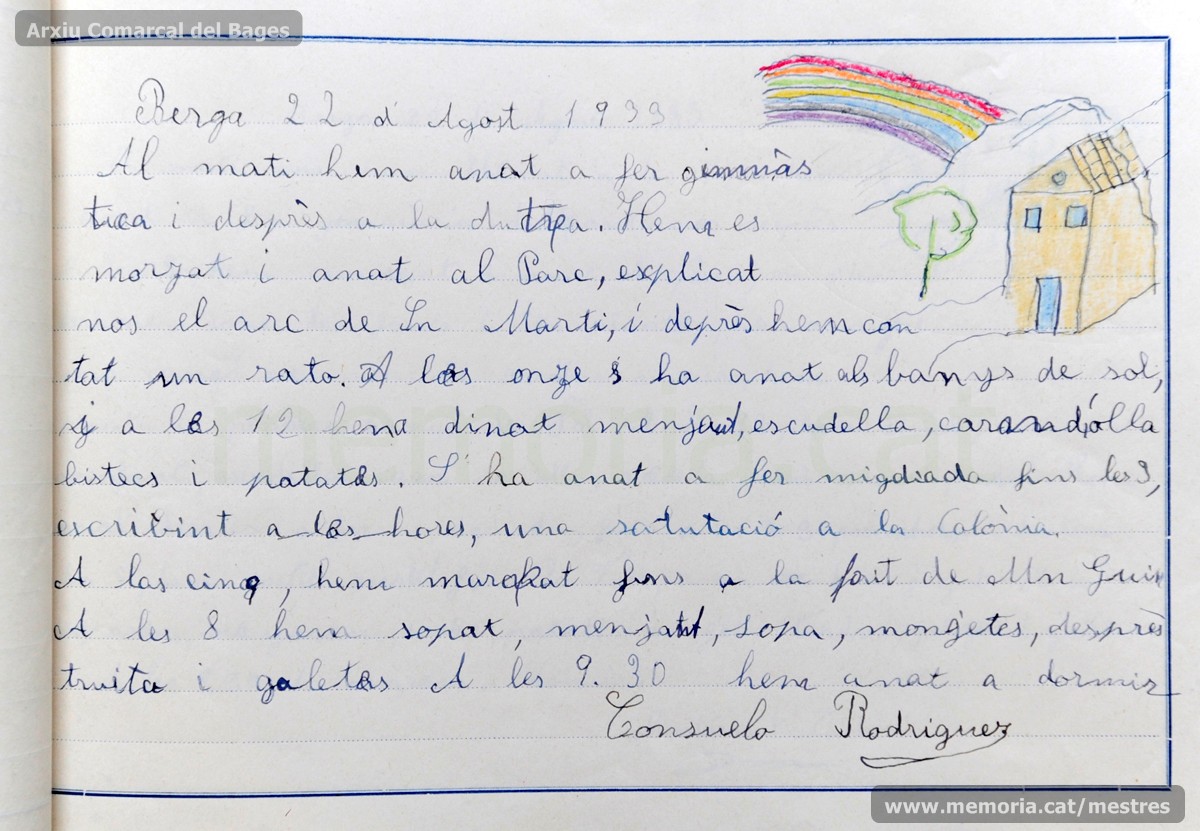 Arxiu Comarcal del Bages
Berga 22 d' Agost 1933
Al mati hem anat a fer gimnàs
tica i desprès a la dutxa. Hem es
morzat i anat al Parc, explicat
nos el arc de Sn Marti, i deprès hem can
tat un rato. A les onze s' ha anat als banys de sol,
i a les 12 hem dinat menjant, escudella, carandólla
bistecs i patates. S' ha anat a fer migdiada fins les 3,
escribint a les hores, una salutació a la Colònia.
A las cinq, hem marxat fins a la font de Mn Guiu
A les 8 hem sopat, menjant, sopa, mongetes, desprès
truita i galetes A les 9.30 hem anat a dormir
Consuelo Rodriguez
memoria.cat
www.memoria.cat/mestres